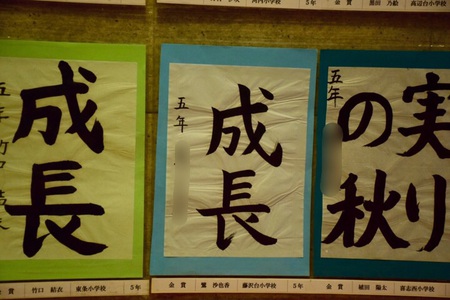 小学校 5年
金賞 乃絵 高辺台小学校
成長
五年 竹口
成長
五年
実り
の秋
五年
金賞 竹口 結衣 東条小学校 5年
金賞 沙也香 藤沢台小学校 5年
金賞 植田 陽太 喜志西小学校